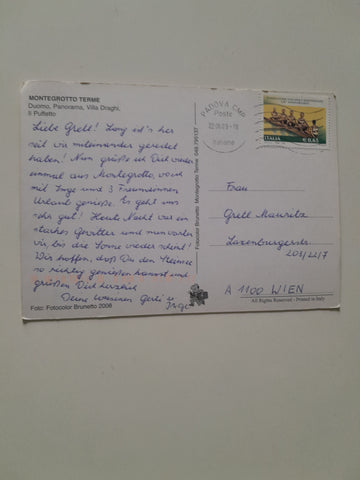 MONTEGROTTO TERME
Duomo, Panorama, Villa Draghi,
Il Puffetto
Liebe Gretl! Lang ist's her
seit wir miteinander geredet
haben! Nun grüße ich Dich wieder
einmal aus Montegrotto, wo ich
mit Inge und 3 Freundinnen
Urlaub genieße. Es geht uns
sehr gut! Heute Nacht war ein
starkes Gewitter und nun warten
wir, bis die Sonne wieder scheint!
Wir hoffen, daß Du den Sommer
so richtig genießen kannst und
grüßen Dich herzlich
Deine Gerti u.
Inge
Foto: Fotocolor Brunetto 2006
Fotocolor Brunetto Montegrotto Terme
PADOVA CMP
Poste
Italiane
ITALIA
€ 0,65
Frau
Gretl Mauritz
Laxenburgerstr.
203/22/7
A 1100 WIEN
All Rights Reserved - Printed in Italy